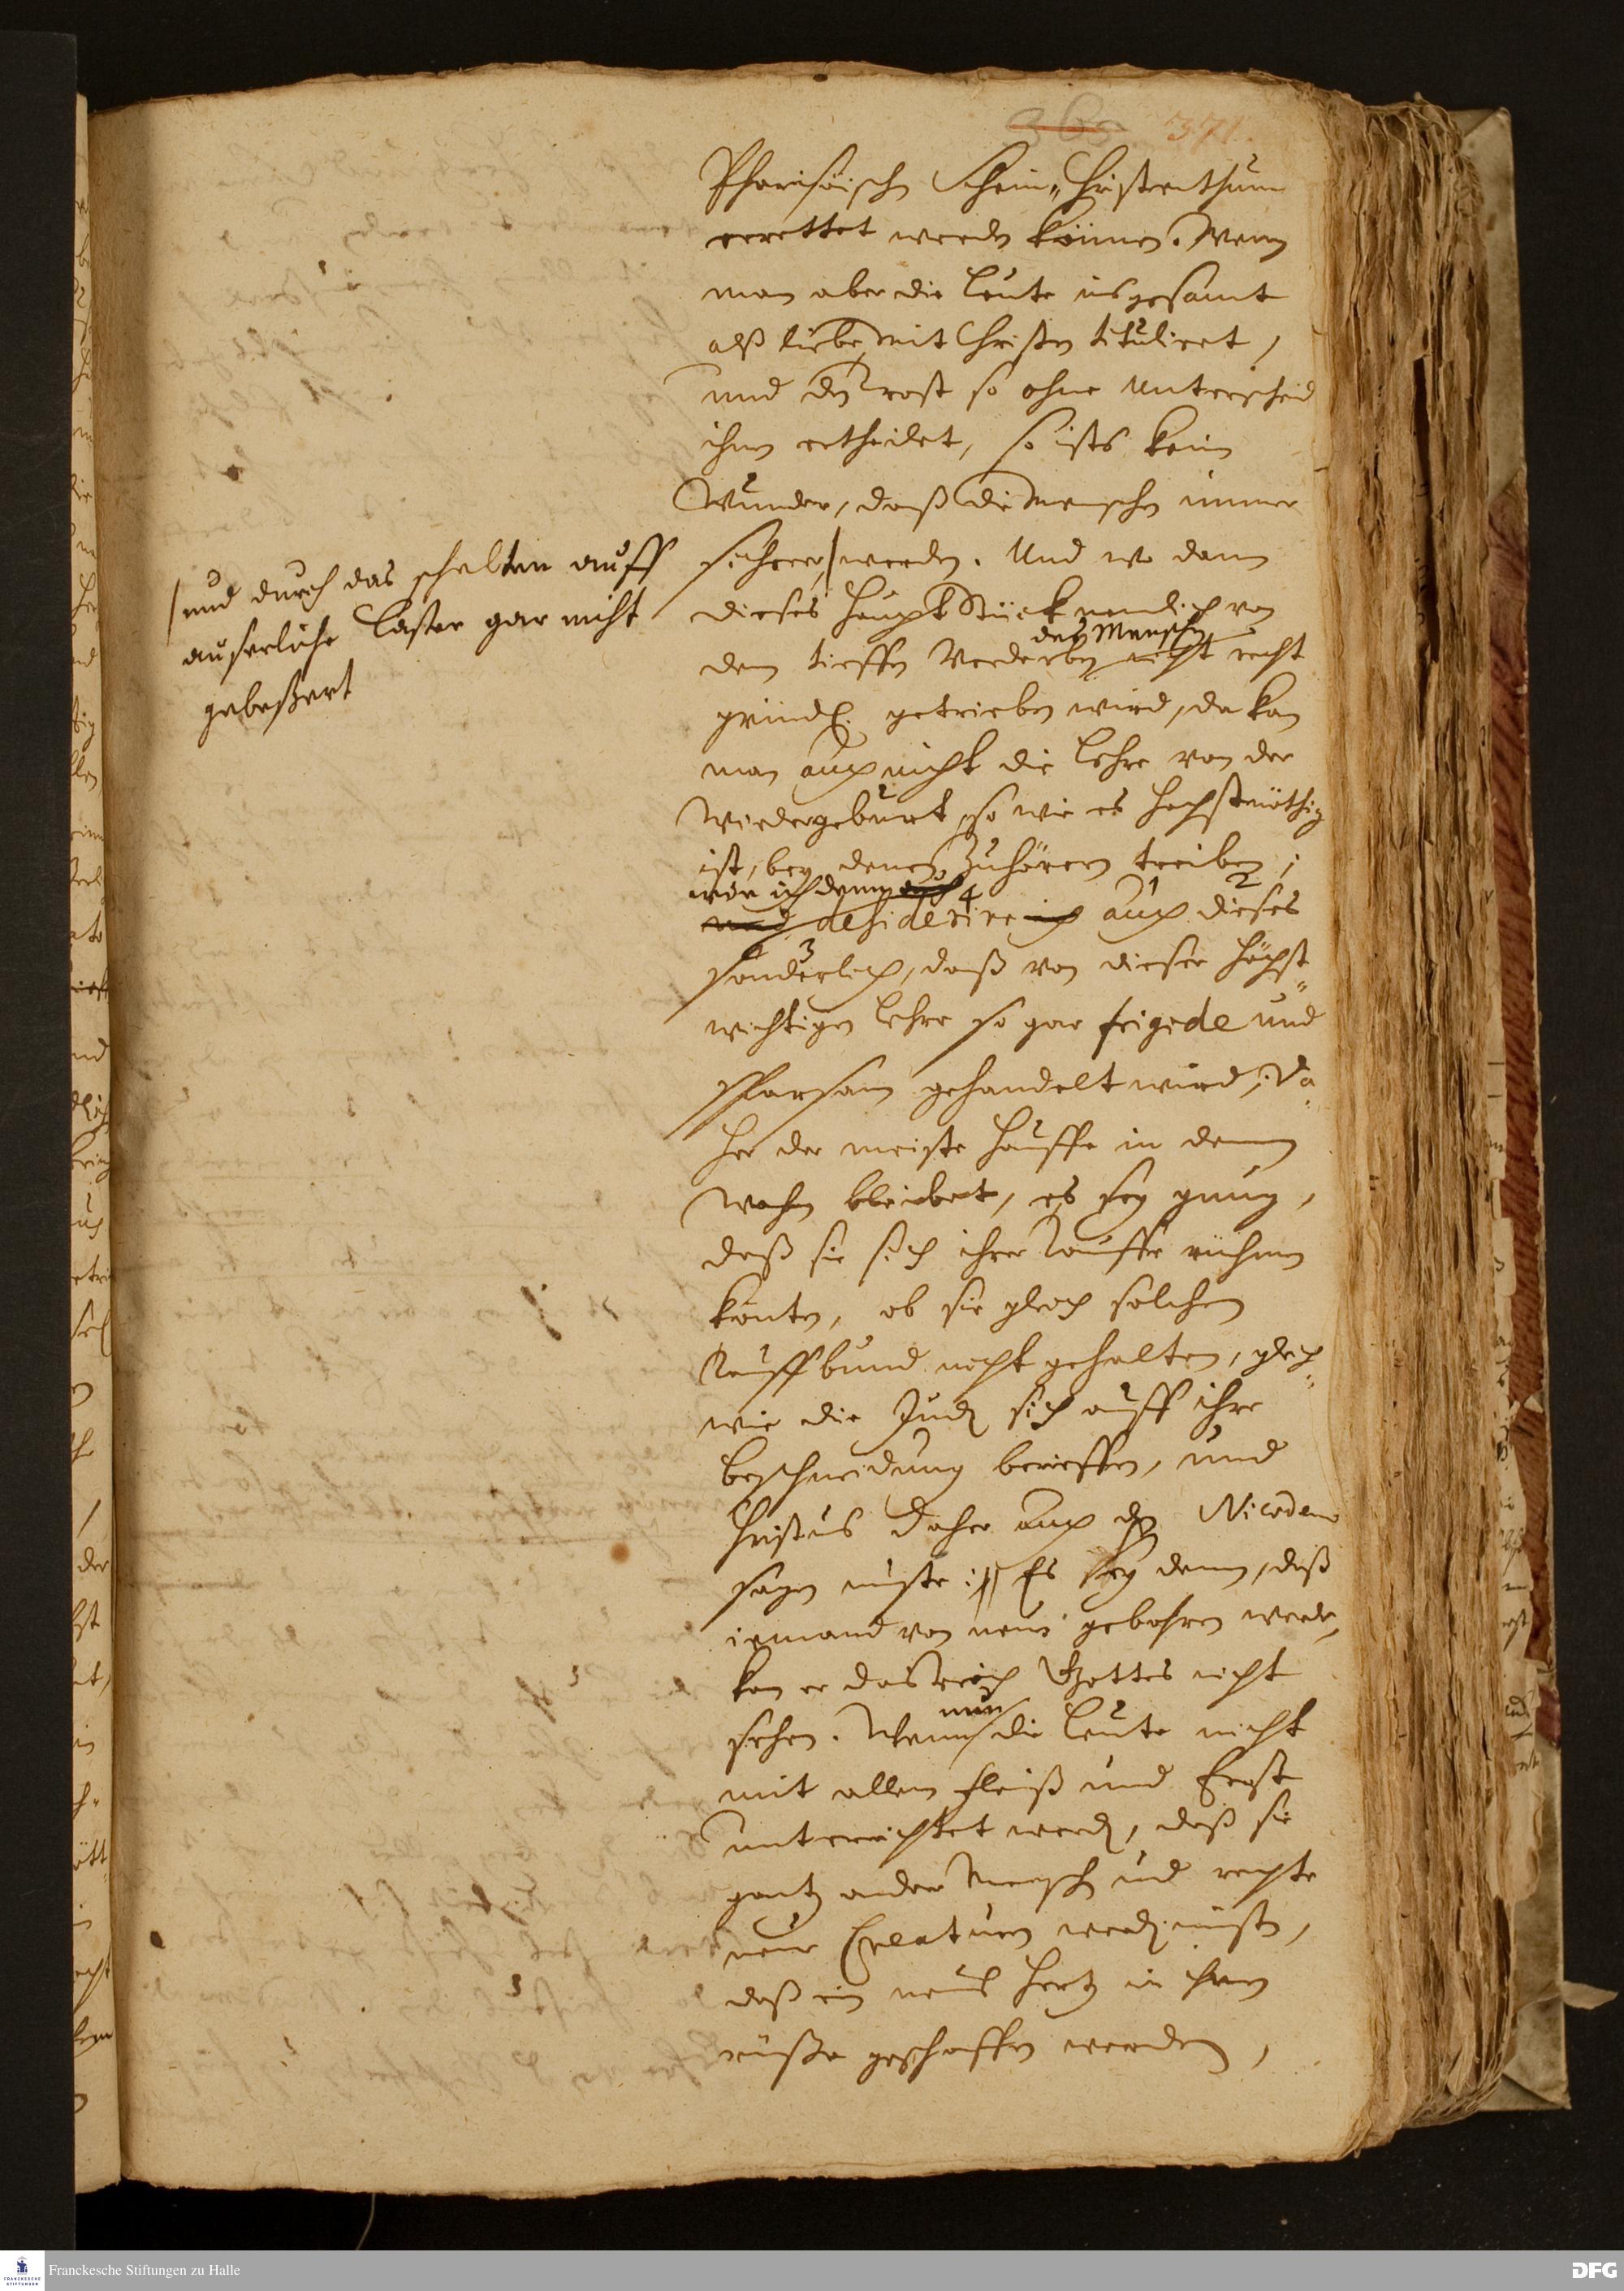 369 371.
Pharisäischen Schein-Christenthum
errettet werden können. Wenn
man aber die Leute insgesamt
alß liebe mit Christen tituliret,
und den Trost so ohne Unterscheid
ihnen ertheilet, so ists kein
Wunder, daß die Menschen immer
sicherer / werden. Und wo dann
/ und durch das schelten auff
äuserliche Laster gar nicht
gebeßert
dieses Hauptstück nemlich von
dem tieffen Verderben des Menschen nicht recht
gründl. getrieben wird, da kan
man auch nicht die Lehre von der
Wiedergeburt, so wie es hochstnöthig
ist, bey denen Zuhörern treiben;
wie ich denn
und desiderire ich auch dieses
4 1 2
sonderlich, daß von dieser höchst
3
wichtigen Lehre so gar frigide und
sparsam gehandelt wird, Da
her der meiste Hauffe in dem
Wahn bleibet, es sey gnug,
daß sie sich ihrer Tauffe rühmen
könten, ob sie gleich solchen
Tauffbund nicht gehalten, gleich
wie die Juden sich auff ihre
Beschneidung berieffen, und
Christus daher auch dem Nicodemo
sagen muste: Es sey denn, daß
iemand von neuē gebohren werde,
kan er das reich Gottes nicht
sehen. Wenn nun die Leute nicht
mit allem Fleiß und Ernst
unterrichtet werden, daß sie
gantz andere Menschen und rechte
neue Creaturen werden müsten,
daß ein neues Hertz in ihnen
müße geschaffen werden,
Franckesche Stiftungen zu Halle
FRANCKESCHE STIFTUNGEN
DFG